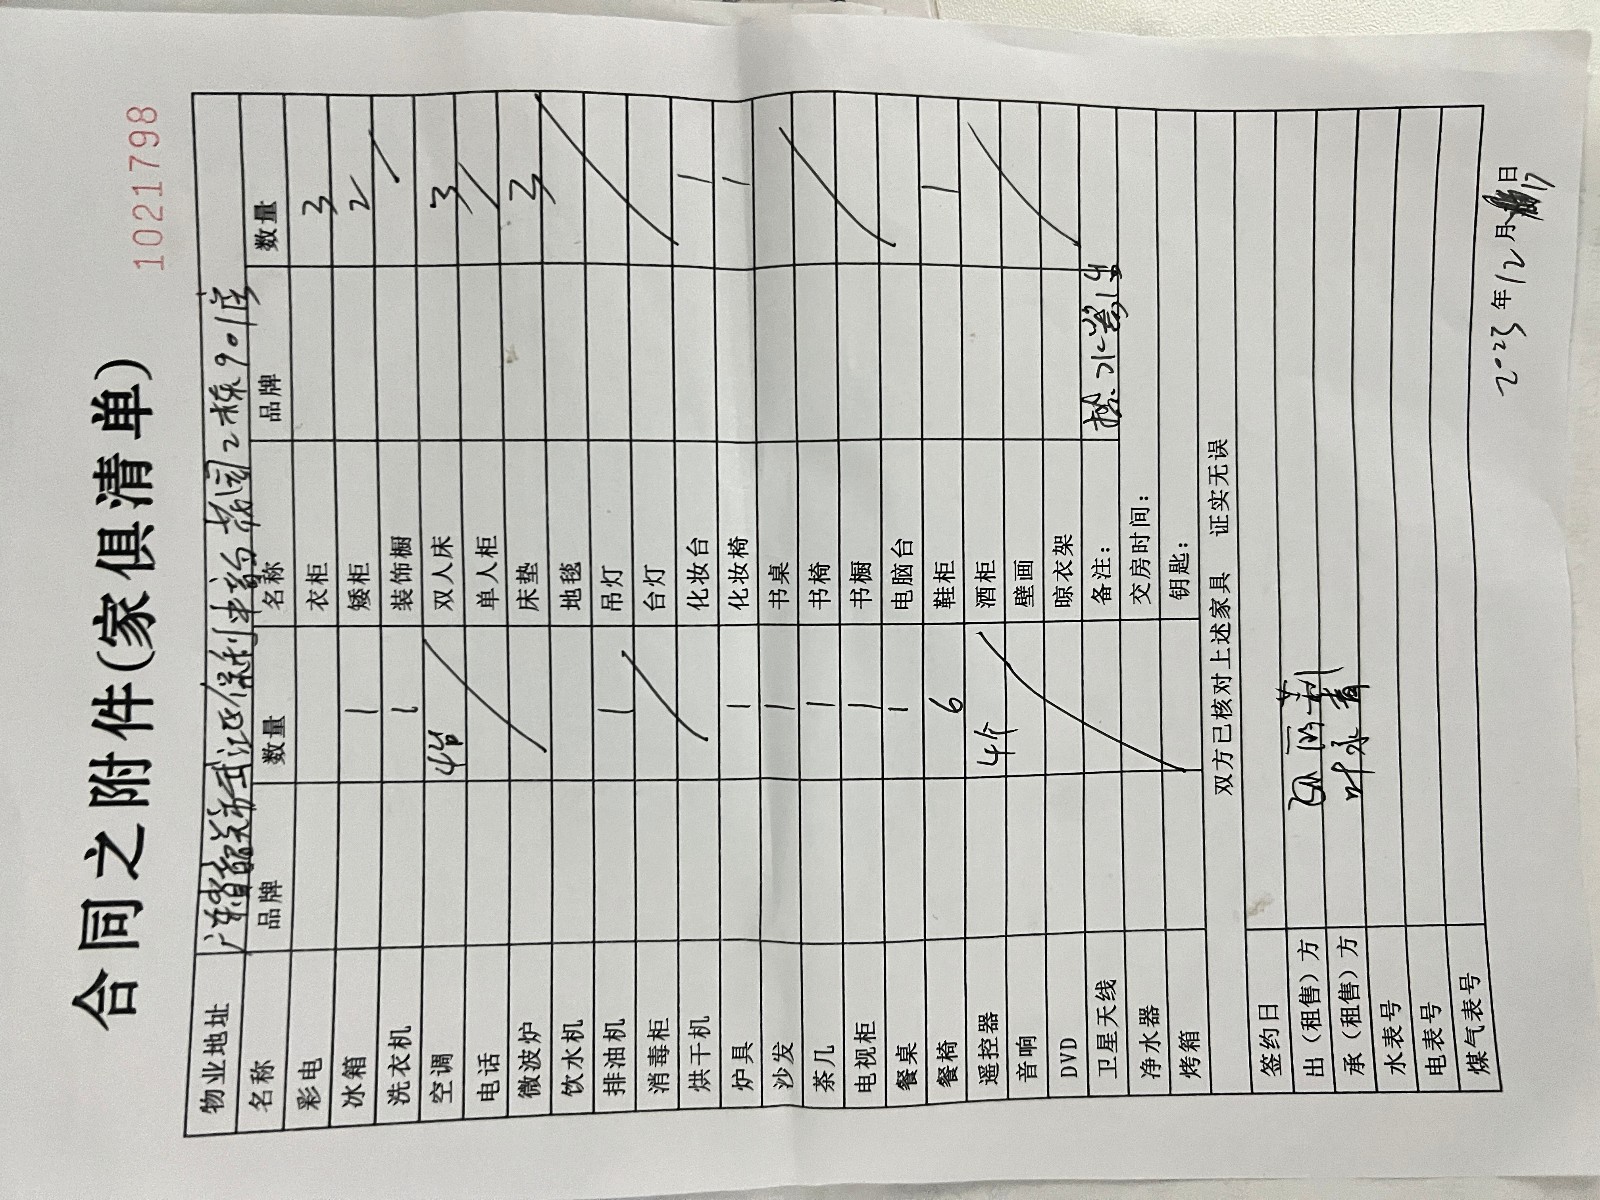 合同之附件(家俱清单)
1021798
物业地址 广东省韶关市武江区保利中宇花园2栋901房
名称 品牌 数量 名称 品牌 数量
彩电 衣柜 3
冰箱 1 矮柜 2
洗衣机 1 装饰橱
空调 4台 双人床 3
电话 单人柜
微波炉 床垫 3
饮水机 地毯
排油机 1 吊灯
消毒柜 台灯
烘干机 化妆台 1
炉具 1 化妆椅 1
沙发 1 书桌
茶几 1 书椅
电视柜 1 书橱
餐桌 1 电脑台
餐椅 6 鞋柜 1
遥控器 4个 酒柜
音响 壁画
DVD 晾衣架
卫星天线 备注: 热水器1台
净水器 交房时间:
烤箱 钥匙:
双方已核对上述家具 证实无误
签约日
出(租售)方
承(租售)方 叶永青
水表号
电表号
煤气表号
2023年12月17日